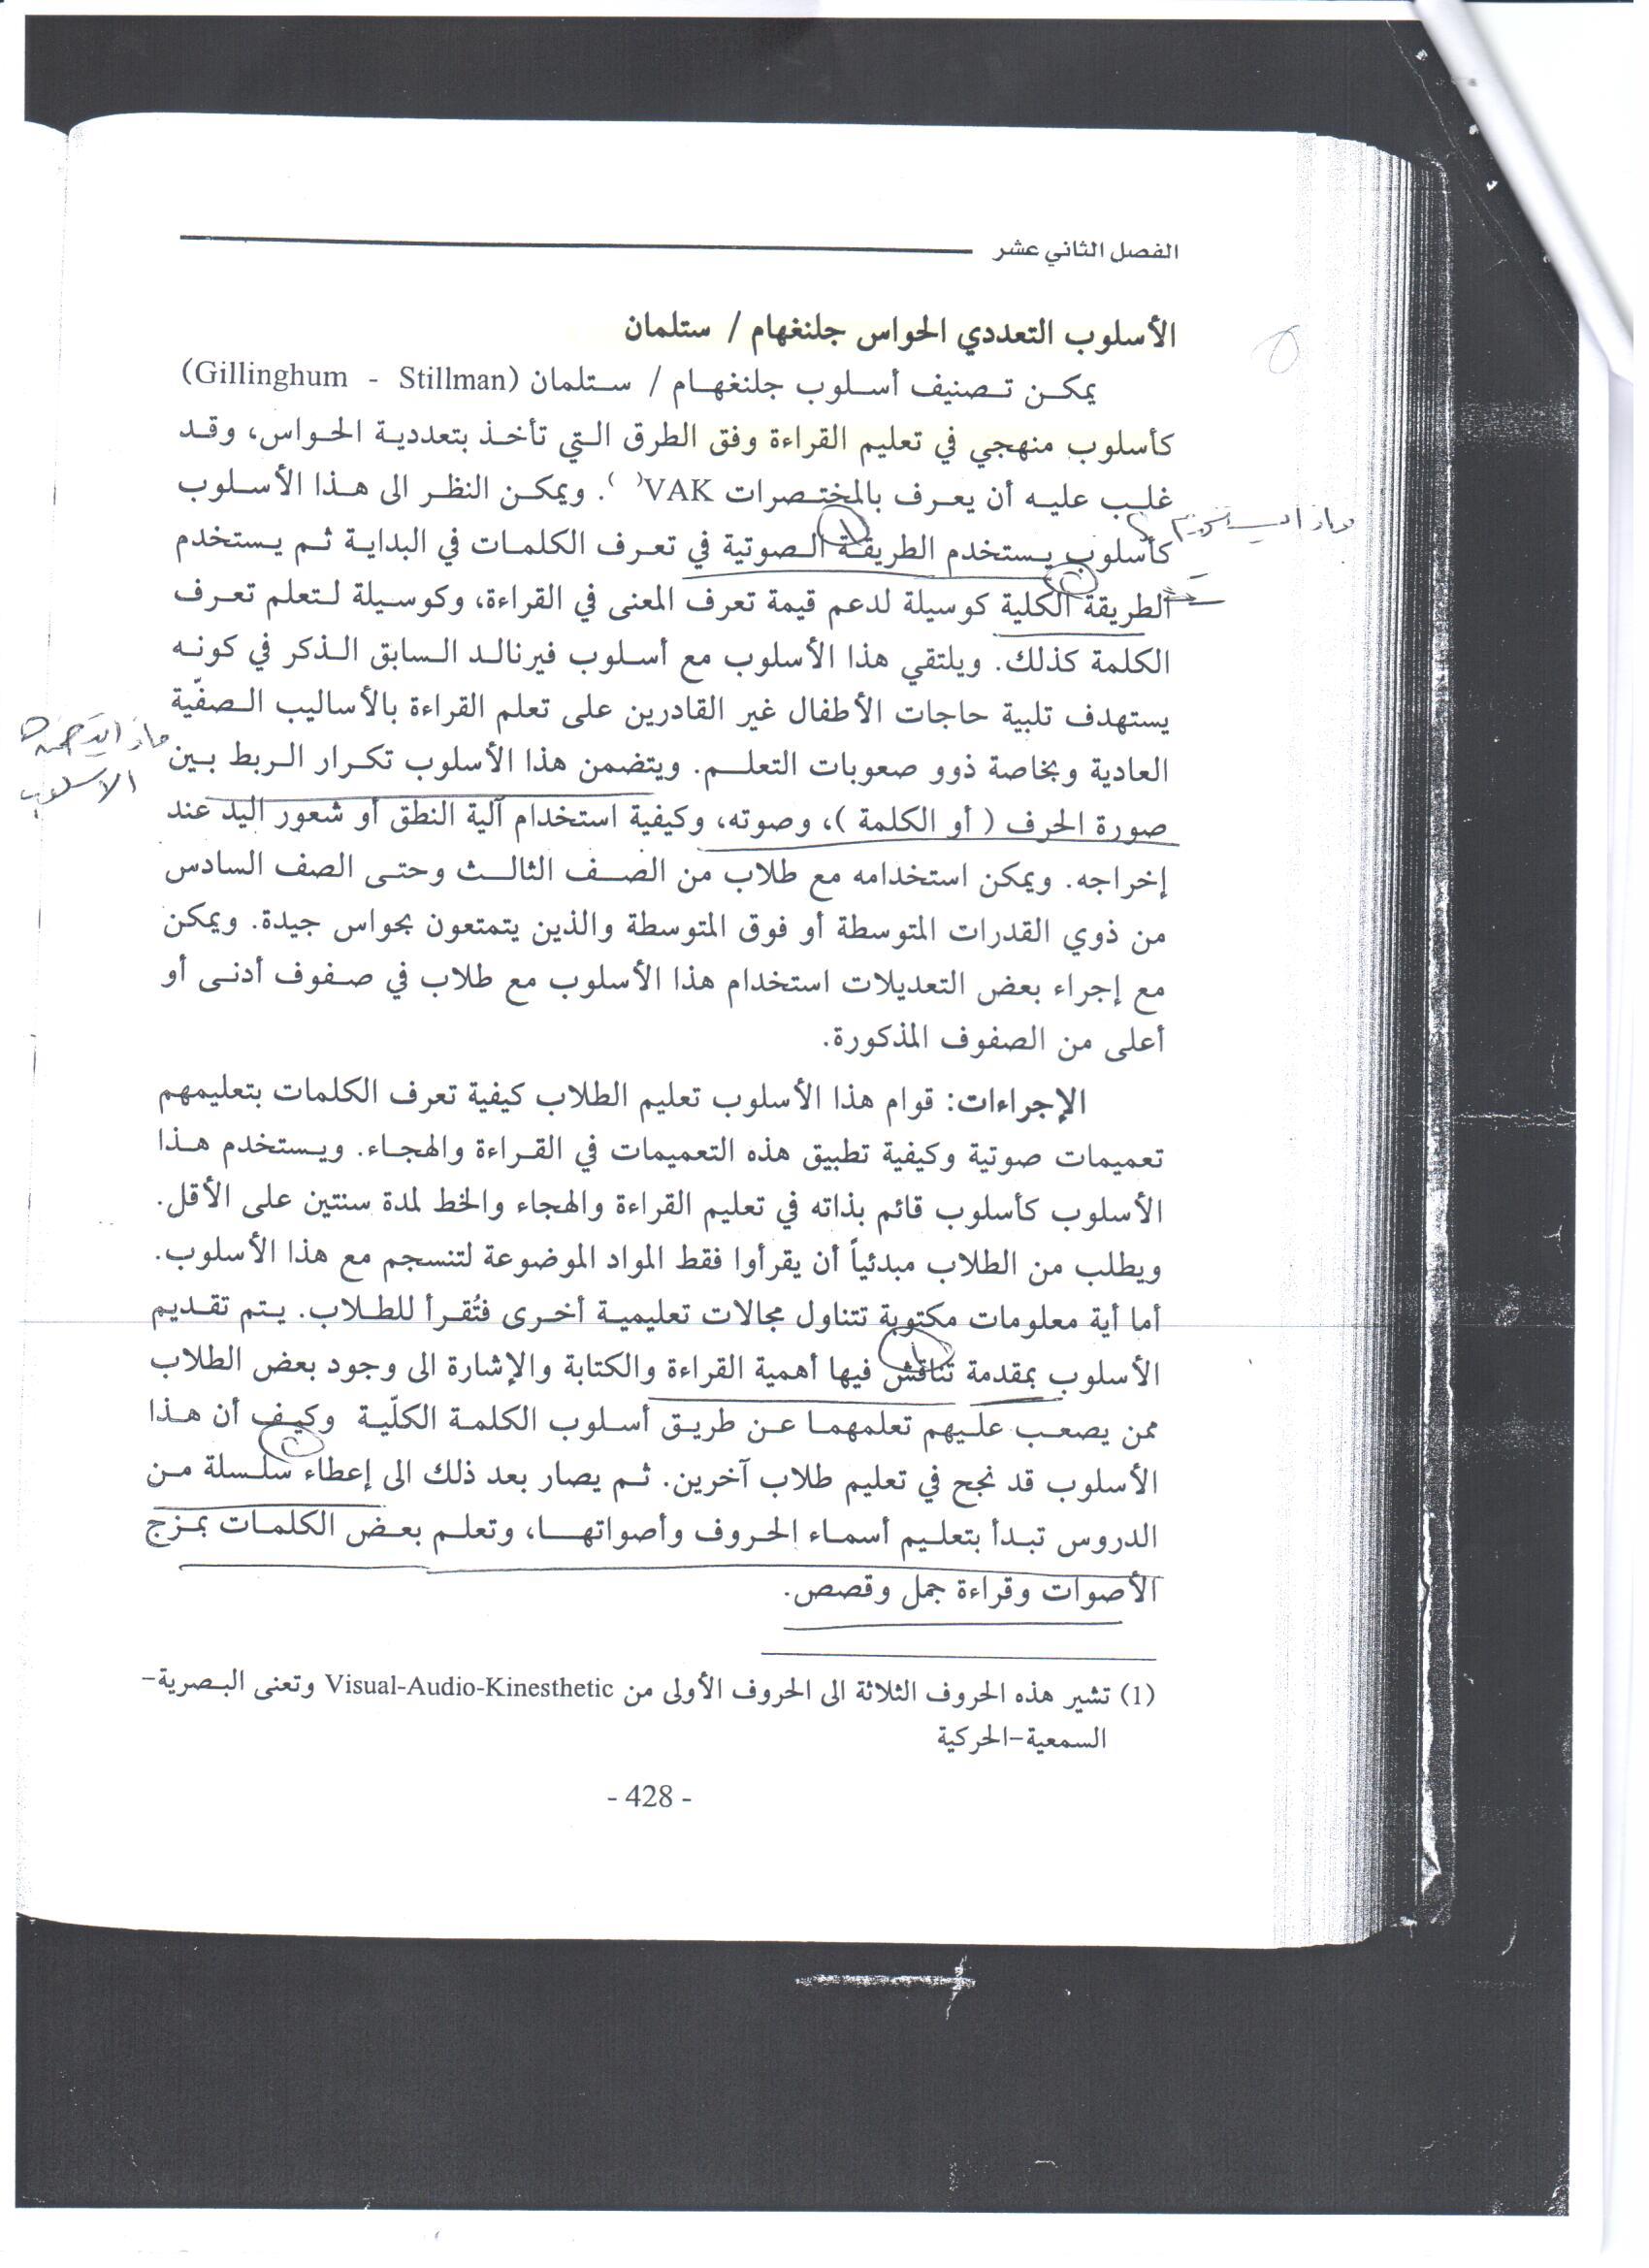 الفصل الثاني عشر
الأسلوب التعددي الحواس جلنغهام / ستلمان
يمكن تصنيف أسلوب جلنغهام / ستلمان (Gillinghum - Stillman)
كأسلوب منهجي في تعليم القراءة وفق الطرق التي تأخذ بتعددية الحواس، وقد
غلب عليه أن يعرف بالمختصرات VAK( ). ويمكن النظر الى هذا الأسلوب
كأسلوب يستخدم الطريقة الصوتية في تعرف الكلمات في البداية ثم يستخدم
الطريقة الكلية كوسيلة لدعم قيمة تعرف المعنى في القراءة، وكوسيلة لتعلم تعرف
الكلمة كذلك. ويلتقي هذا الأسلوب مع أسلوب فيرنالد السابق الذكر في كونه
يستهدف تلبية حاجات الأطفال غير القادرين على تعلم القراءة بالأساليب الصفّية
العادية وبخاصة ذوو صعوبات التعلم. ويتضمن هذا الأسلوب تكرار الربط بين
صورة الحرف ( أو الكلمة )، وصوته، وكيفية استخدام آلية النطق أو شعور اليد عند
الاسلوب
إخراجه. ويمكن استخدامه مع طلاب من الصف الثالث وحتى الصف السادس
من ذوي القدرات المتوسطة أو فوق المتوسطة والذين يتمتعون بحواس جيدة. ويمكن
مع إجراء بعض التعديلات استخدام هذا الأسلوب مع طلاب في صفوف أدنى أو
أعلى من الصفوف المذكورة.
الإجراءات: قوام هذا الأسلوب تعليم الطلاب كيفية تعرف الكلمات بتعليمهم
تعميمات صوتية وكيفية تطبيق هذه التعميمات في القراءة والهجاء. ويستخدم هذا
الأسلوب كأسلوب قائم بذاته في تعليم القراءة والهجاء والخط لمدة سنتين على الأقل.
ويطلب من الطلاب مبدئياً أن يقرأوا فقط المواد الموضوعة لتنسجم مع هذا الأسلوب.
أما أية معلومات مكتوبة تتناول مجالات تعليمية أخرى فتُقرأ للطلاب. يتم تقديم
الأسلوب بمقدمة تناقش فيها أهمية القراءة والكتابة والإشارة الى وجود بعض الطلاب
ممن يصعب عليهم تعلمهما عن طريق أسلوب الكلمة الكلّية وكيف أن هذا
الأسلوب قد نجح في تعليم طلاب آخرين. ثم يصار بعد ذلك الى إعطاء سلسلة من
الدروس تبدأ بتعليم أسماء الحروف وأصواتها، وتعلم بعض الكلمات بمزج
الأصوات وقراءة جمل وقصص.
(1) تشير هذه الحروف الثلاثة الى الحروف الأولى من Visual-Audio-Kinesthetic وتعنى البصرية-
السمعية-الحركية
- 428 -